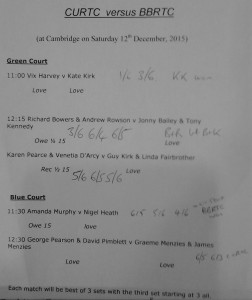 CURTC versus BBRTC
(at Cambridge on Saturday 12th December, 2015)
Green Court
11:00 Vix Harvey v Kate Kirk 1/6 3/6 KK
Love Love
12:15 Richard Bowers & Andrew Rowson v Jonny Bailey & Tony
Kennedy
Owe ½ 15 3/6 6/4 6/5 Love
Karen Pearce & Venetio D'Arcy v Guy Kirk & Linda Fairbrother
Rec ½ 15 5/6 6/5 5/6 Love
Blue Court
11:30 Amanda Murphy v Nigel Heath 6/5 5/6 4/6
Owe 15 love
12:30 George Pearson & David Pimblett v Graeme Menzies & James
Menzies
6/5 6/3
Love Love
Each match will be best of 3 sets with the third set starting at 3 all